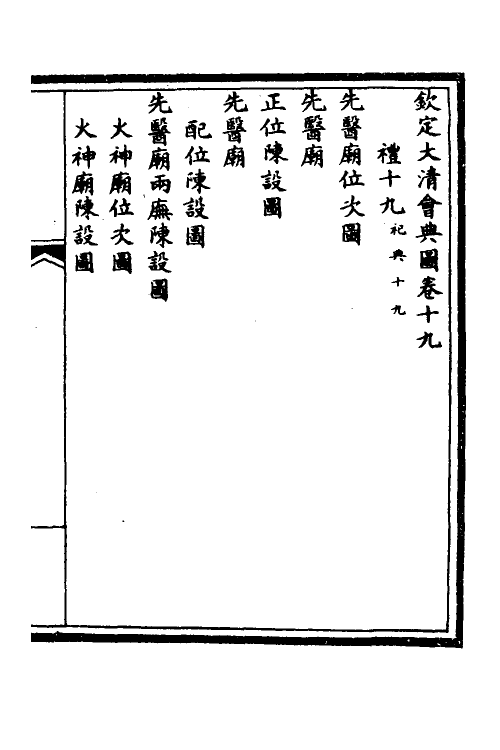 欽定大清會典圖卷十九
禮十九祀典十九
先醫廟位次圖
先醫廟
正位陳設圖
先醫廟
配位陳設圖
先醫廟兩廡陳設圖
火神廟位次圖
火神廟陳設圖